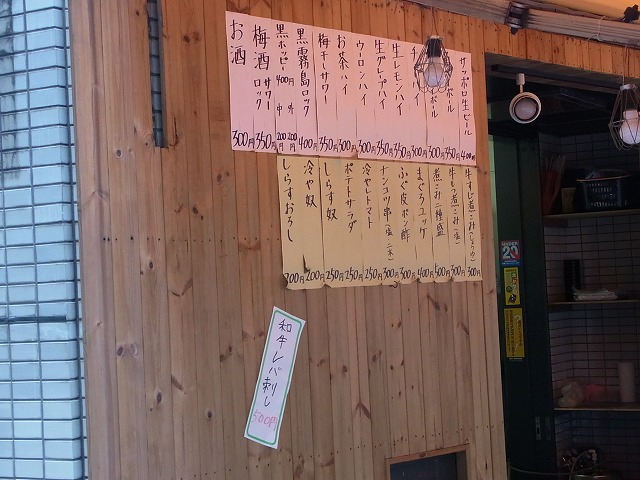 サッポロ生ビール 400円
ボール 350円
ボール 300円
ハイ 300円
生レモンハイ 350円
生グレープハイ 350円
ウーロンハイ 300円
お茶ハイ 300円
梅干サワー 350円
黒霧島ロック 400円
黒ホッピー 400円 中 200円 外 200円
梅酒 サワー ロック 350円
お酒 300円
牛すじ煮こみ(しょうゆ) 300円
牛もつ煮こみ(塩) 300円
煮こみ二種盛 500円
まぐろユッケ 400円
ふぐ皮ポン酢 300円
ナンコツ串(塩)二本 300円
冷やしトマト 250円
ポテトサラダ 250円
しらす奴 250円
冷や奴 200円
しらすおろし 200円
和牛レバ刺し 500円
UNDER 20